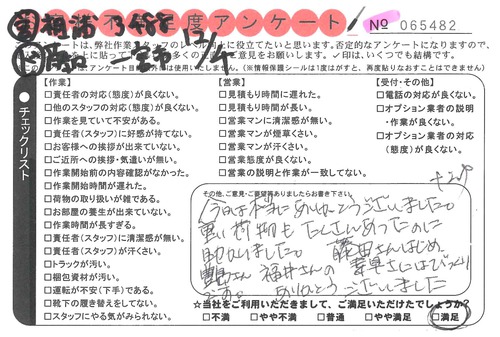 不 度アンケート No 065482
12/4
ートは、弊社作業スタッフのレベル向上に役立てたいと思います。否定的なアンケートになりますので、
をお願いします。✓印は、いくつでも結構です。
このアンケート 使用いたしません。(※情報保護シールは1度がすと、再度貼りなおすことはできません)
●チェックリスト
【作業】
□責任者の対応(態度)が良くない。
□他のスタッフの対応(態度)が良くない。
□作業を見ていて不安がある。
□責任者(スタッフ)に好感が持てない。
□お客様への挨拶が出来ていない。
□ご近所への挨拶・気遣いが無い。
□作業開始前の内容確認がなかった。
□作業開始時間が遅れた。
□荷物の取り扱いが雑である。
□お部屋の養生が出来ていない。
□作業時間が長すぎる。
□責任者(スタッフ)に清潔感が無い。
□責任者(スタッフ)が汗くさい。
□トラックが汚い。
□梱包資材が汚い。
□運転が不安(下手)である。
□靴下の履き替えをしてない。
□スタッフにやる気がみられない。
【営業】
□見積もり時間に遅れた。
□見積もり時間が長い。
□営業マンに清潔感が無い。
□営業マンが煙草くさい。
□営業マンが汗くさい。
□営業態度が良くない。
□営業の説明と作業が一致してない。
【受付・その他】
□電話の対応が良くない。
□オプション業者の説明
・作業が良くない。
□オプション業者の対応
(態度)が良くない。
その他、ご意見・ご要望等ありましたらお書き下さい。
今回は本当にありがとうございました。
重い荷物もたくさんあったのに
助かりました。 藤田さんはじめ
さん 福井さんの にはびっくり
です。 ありがとうございました
☆当社をご利用いただきまして、ご満足いただけたでしょうか?
□不満 □やや不満 □普通 □やや満足 □満足